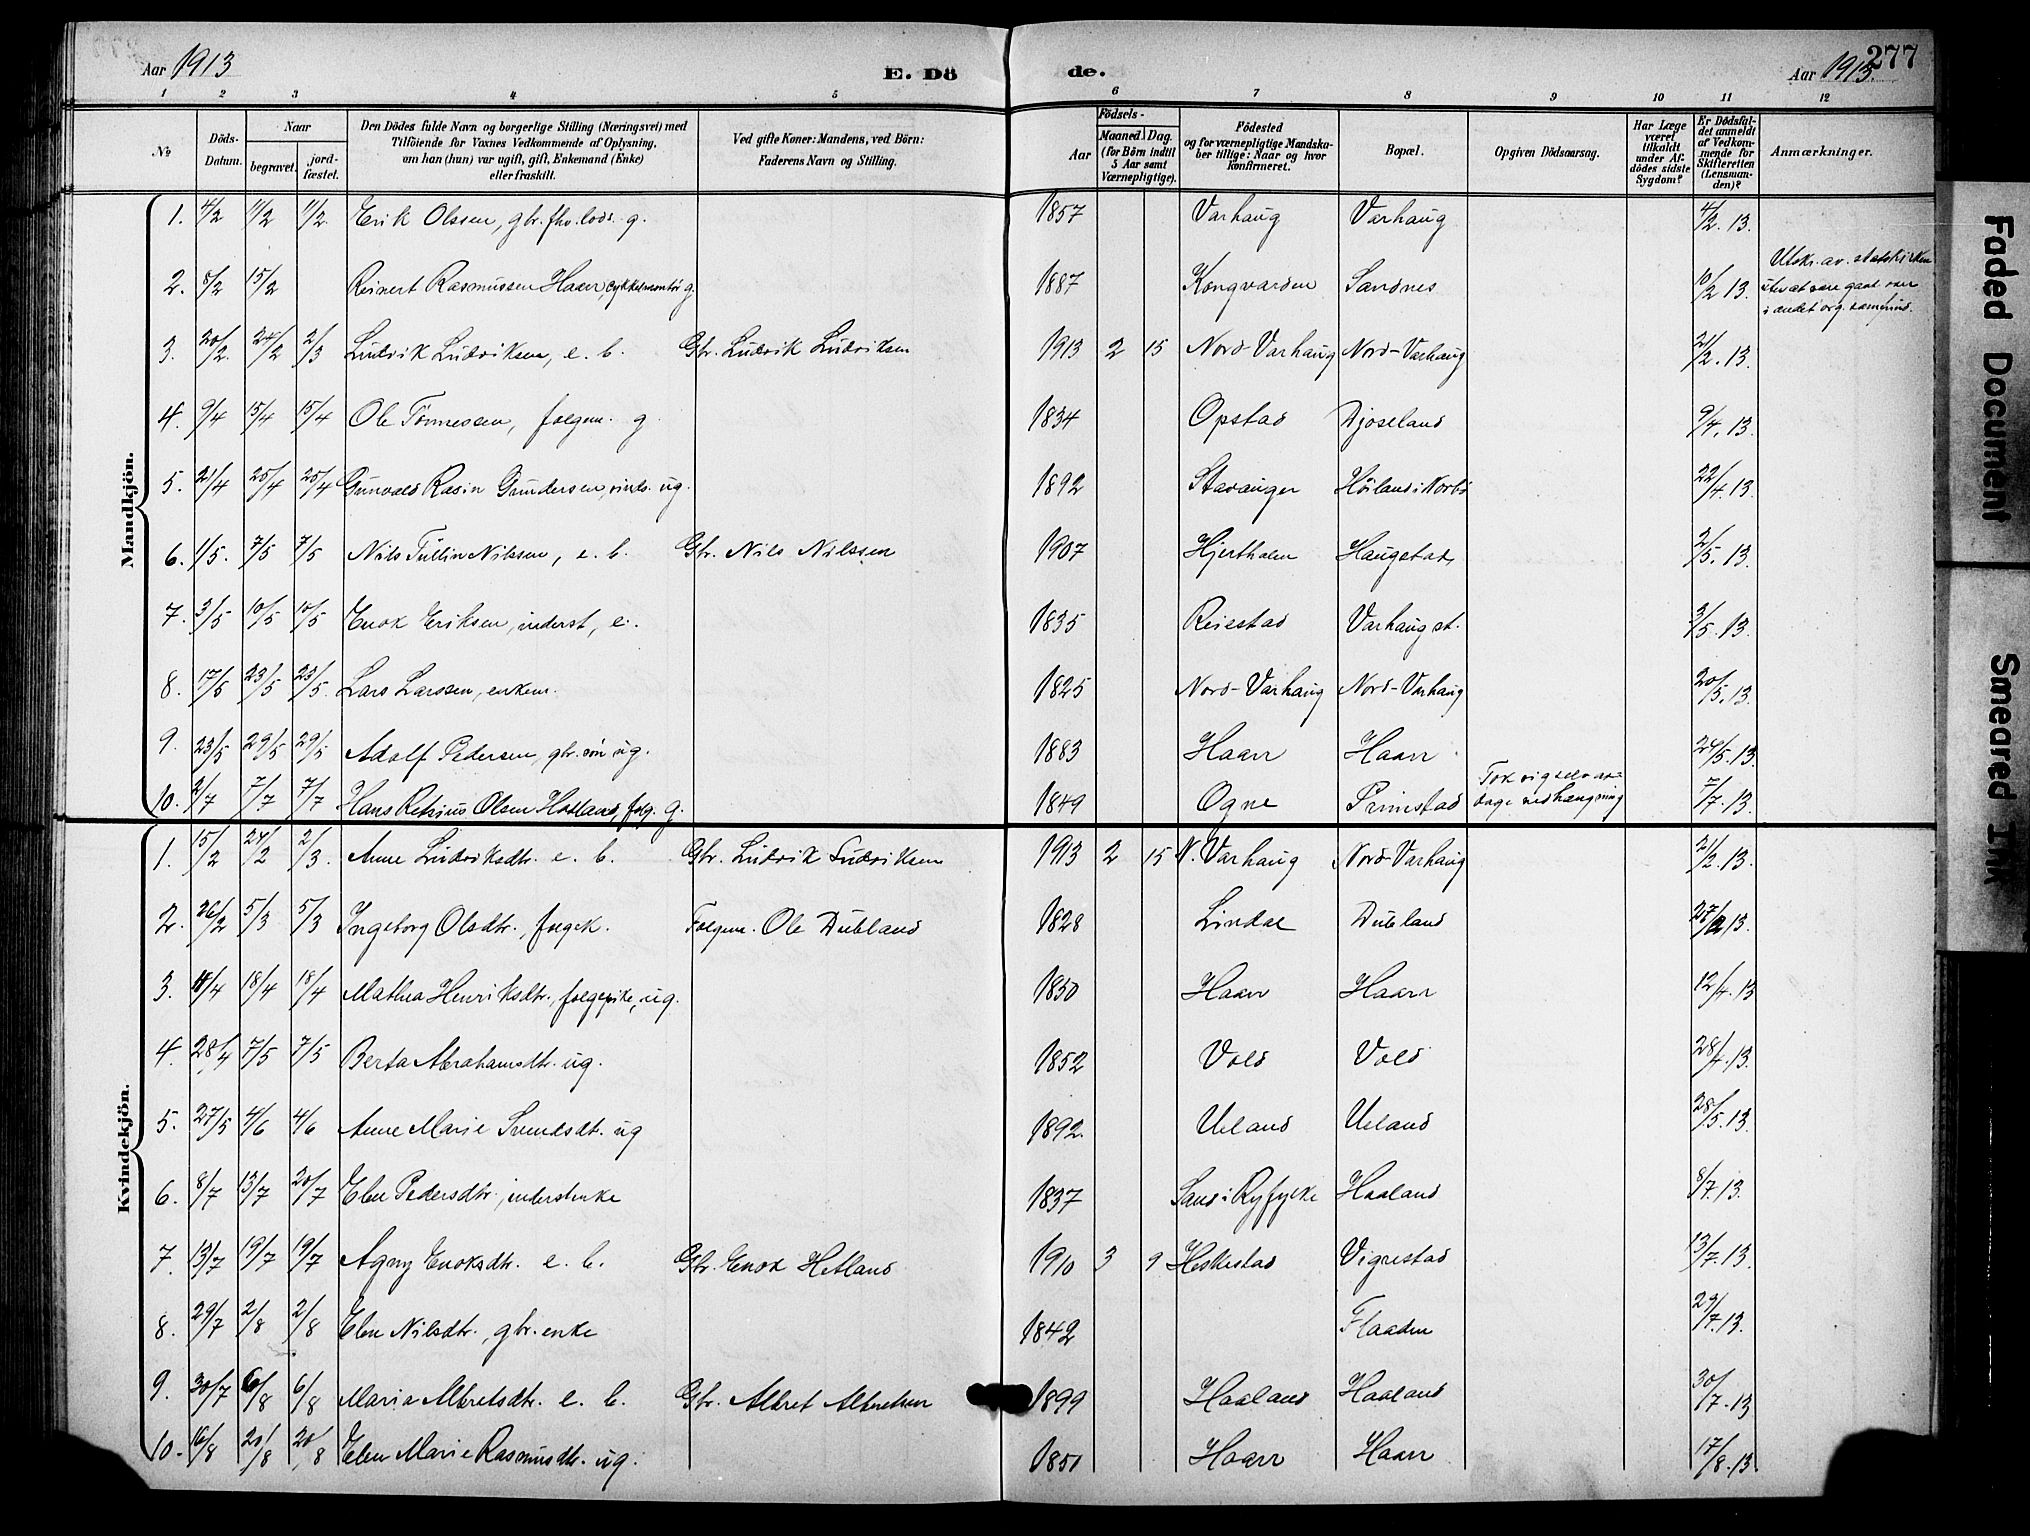 Aar 1913
E. Dö
de.
Aar 1913.
277
1 2 3 4 5 6 7 8 9 10 11 12
No
Döds-
Datum.
Naar
begravet.
jord-
fæstet.
Den Dödes fulde Navn og borgerlige Stilling (Næringsvei) med
Tilföiende for Voxnes Vedkommende af Oplysning,
om han (hun) var ugift, gift, Enkemand (Enke)
eller fraskilt.
Ved gifte Koner: Mandens, ved Börn:
Faderens Navn og Stilling.
Födsels-
Aar
Maaned. Dag.
(for Börn indtil
5 Aar samt
Værnepligtige).
Födested
og for værnepligtige Mandska-
ber tillige: Naar og hvor
konfirmeret.
Bopæl.
Opgiven Dödsaarsag.
Har Læge
været
tilkaldt
under Af-
dödes sidste
Sygdom?
Er Dödsfal-
det anmeldt
af Vedkom-
mende for
Skifteretten
(Lensman-
den)?
Anmærkninger.
Mandkjön.
1. 4/2 11/2 11/2 Erik Olssen, gbr. fhv. lods. g. 1857 Varhaug Varhaug 4/2. 13.
2. 8/2 15/2 Reinert Rasmussen Haarr, cykkelmontør g. 1887 Kongvarden Sandnes 10/2 13. Utskr. av. statskirken
uten at være gaat over
i andet org. samfund.
3. 20/2. 24/2 2/3 Ludvik Ludviksen, e. b. Gbr. Ludvik Ludviksen 1913 2 15 Nord-Varhaug Nord-Varhaug 21/2. 13.
4. 9/4 15/4 15/4 Ole Tønnessen, folgm. g 1834 Opstad Djoseland 9/4. 13.
5. 21/4 25/4 25/4 Gunvald Rasin Gundersen, ug. 1892 Stavanger Höiland i Norbö 22/4. 13.
6. 1/5. 7/5 7/5 Nils Tullin Nilssen, e. b. Gbr. Nils Nilssen 1907 Hjerthalen Haugstad, 2/5. 13.
7. 3/5 10/5 10/5 Enok Eriksen, inderst, e. 1835 Reiestad Varhaug st. 3/5. 13.
8. 17/5 23/5 23/5. Lars Larssen, enkem. 1825 Nord-Varhaug Nord-Varhaug 20/5. 13.
9. 23/5 29/5 29/5 Adolf Pedersen, gbr. søn ug. 1883 Haarr Haarr 24/5. 13.
10. 2/7 7/7 7/7 Hans Retzius Olsen Hobland, folg. g. 1849 Ogne Primstad Tok sig selv av-
dage ved hængning 7/7. 13.
Kvindekjön.
1. 15/2 24/2 2/3. Anne Ludviksdtr. e. b. Gbr. Ludvik Ludviksen 1913 2 15 N. Varhaug Nord-Varhaug 21/2. 13.
2. 26/2 5/3 5/3 Ingeborg Olsdtr., folgek. Folgem. Ole Dubland 1828 Lindal Dubland 27/2 13.
3. 11/4 18/4 18/4 Mathea Henriksdtr., folgepike, ug. 1850 Haarr Haarr 12/4. 13
4. 28/4 7/5 7/5 Berta Abrahamsdtr. ug. 1852 Vold Vold 28/4. 13.
5. 27/5 4/6 4/6 Anne Marie Svendsdt. ug 1892. Ueland Ueland 28/5. 13.
6. 8/7 13/7 20/7 Elen Pedersdtr., inderstenke 1837 Sand i Ryfylke Haaland 8/7. 13.
7. 13/7 19/7 19/7 Agny Enoksdtr. e. b. Gbr. Enok Hetland 1910 3 9 Heskestad Vigrestad 13/7. 13.
8. 29/7 2/8 2/8 Elen Nilsdtr., gbr. enke 1842 Flaaden 29/7. 13.
9. 30/7 6/8 6/8 Maria Albretsdtr. e. b. Gbr. Albret Albretsen 1899 Haaland Haaland 30/7. 13
10. 16/8 20/8 20/8 Elen Marie Rasmusdtr. ug. 1851 Haarr Haarr 17/8. 13
Faded Document
Smeared Ink